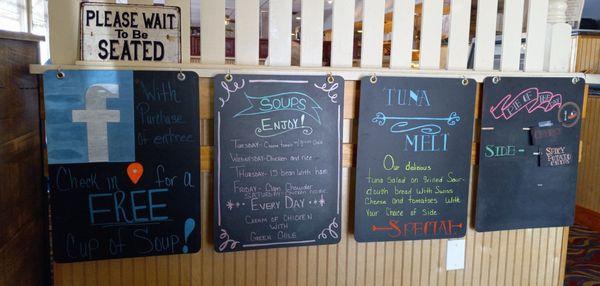 PLEASE WAIT
To Be
SEATED
PLEASE
WAIT
f
With
Purchase
of entree
Check in for a
FREE
Cup of Soup!
SOUPS
ENJOY!
Wednesday-Chicken and rice
Thursday- 15 bean with ham
Friday- Clam Chowder
Every Day
Cream of Chicken
with
Green Chile
TUNA
MELT
Our delicious
Tuna Salad on grilled Sour-
dough bread With Swiss
Cheese and tomatoes With
Your Choice of Side.
SPECIAL
PIE OF THE
SIDE-
SPICY
POTATO